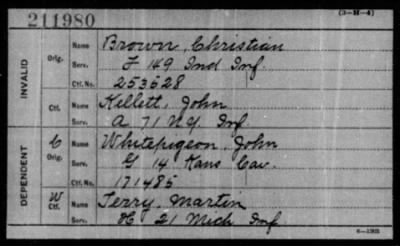 211980 (3-H-4)
INVALID Orig. Name Brown, Christian
Serv. F 149 Ind Inf.
Ctf. No. 253528
Ctf. Name Killett, John
Serv. A 71 N.Y. Inf.
DEPENDENT C Orig. Name Whitepigeon, John
Serv. G 14 Kans Cav.
Ctf. No. 171485
W Ctf. Name Terry, Martin
Serv. H 21 Mich Inf